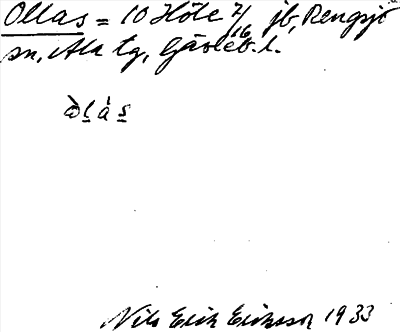 Ollas = 10 Höle 7/16 jb, Rengsjö
sn, Ala tg, Gävleb. l.
ò l á s
Nils Erik Eriksson 1933